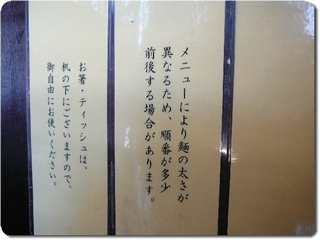 メニューにより麺の太さが
異なるため、順番が多少
前後する場合があります。
お箸・ティッシュは、
机の下にございますので、
御自由にお使いください。